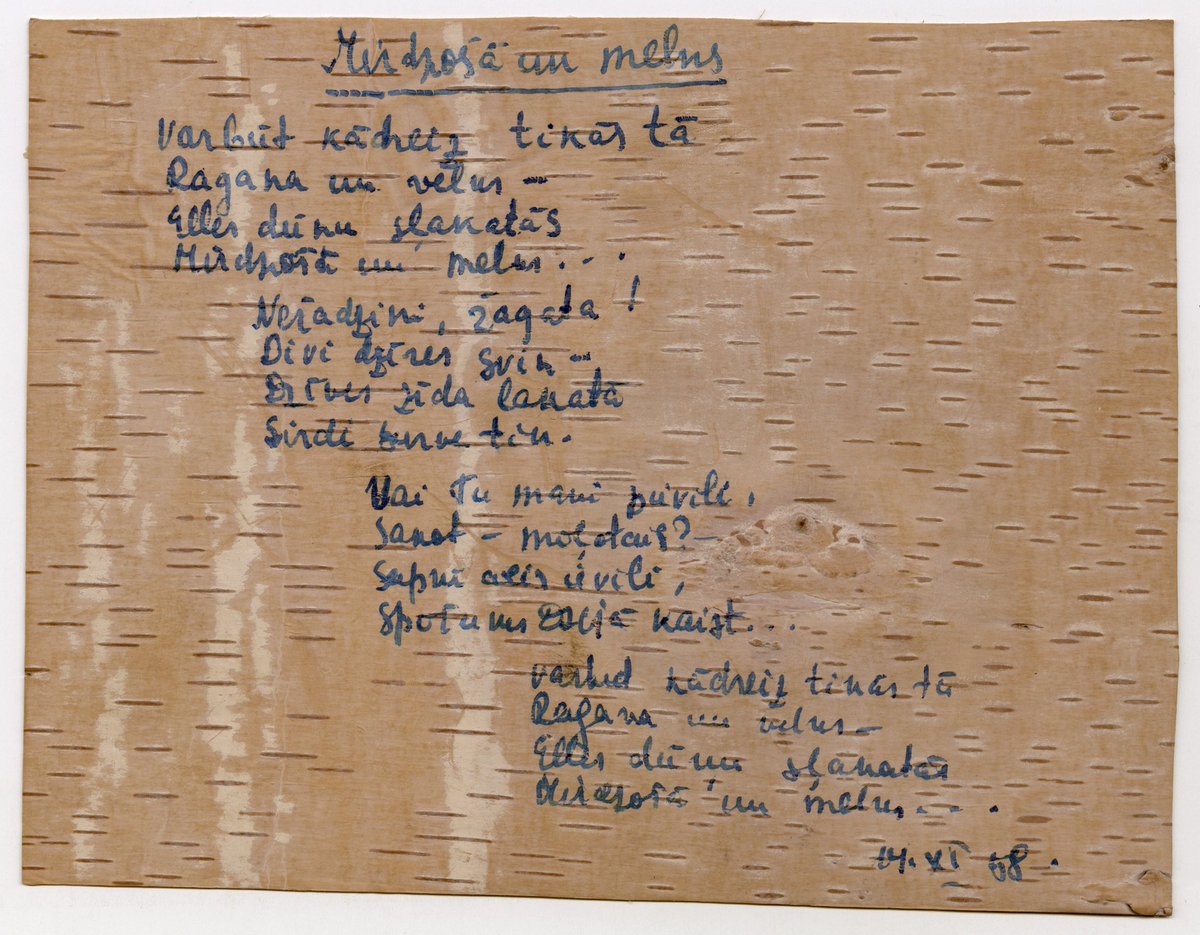 Mirdzošā un melns
Varbūt kādreiz tikās tā
Ragana un velns —
Elles dūņu šļakatās
Mirdzošā un melns...
Nešadzini, žagata!
Divi dzīres svin —
Dzīves zīda lakatā
Sirdi kurve tin.
Vai Tu mani pievīli,
Sakot —
Sapni acis ievīli,
Spotums kaist...
Varbūt kādreiz tikās tā
Ragana un velns —
Elles dūņu šļakatās
Mirdzošā un melns...
14. XI 58.